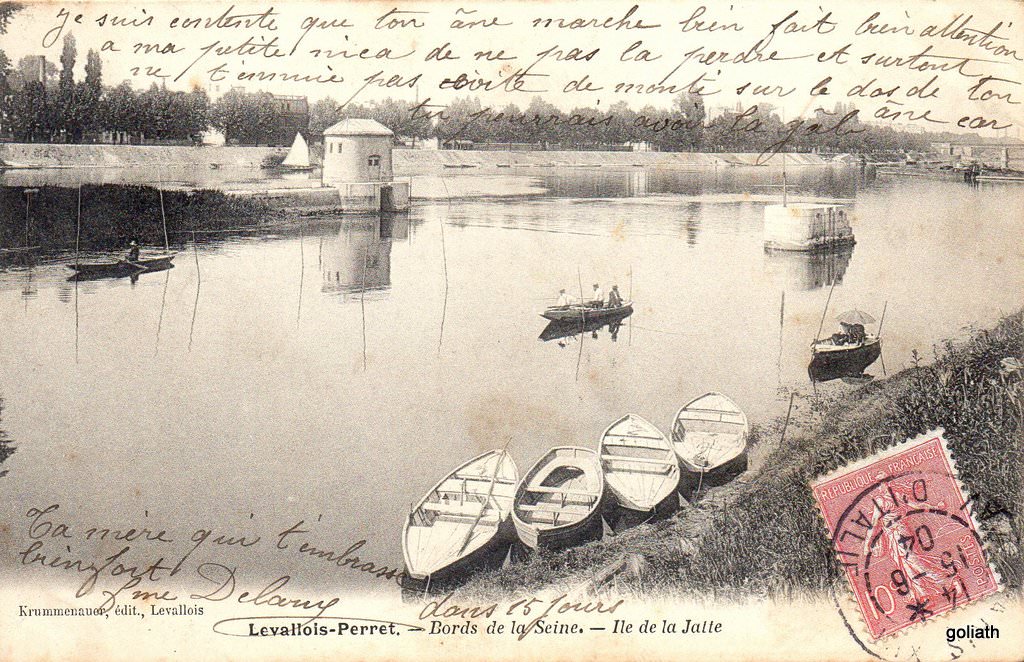 je suis contente que ton âne marche bien fait bien attention
a ma petite nica de ne pas la perdre et surtout
ne t'ennuie pas évite de monté sur le dos de ton
âne car
tu pourrais avoir la gâle
Ta mère qui t'embrasse
bien fort
Mme Delarny
dans 15 jours
Krummenauer, édit., Levallois
Levallois-Perret. — Bords de la Seine. — Ile de la Jatte
REPUBLIQUE FRANÇAISE
POSTES
10
AV. D'ITALIE
15
04
goliath